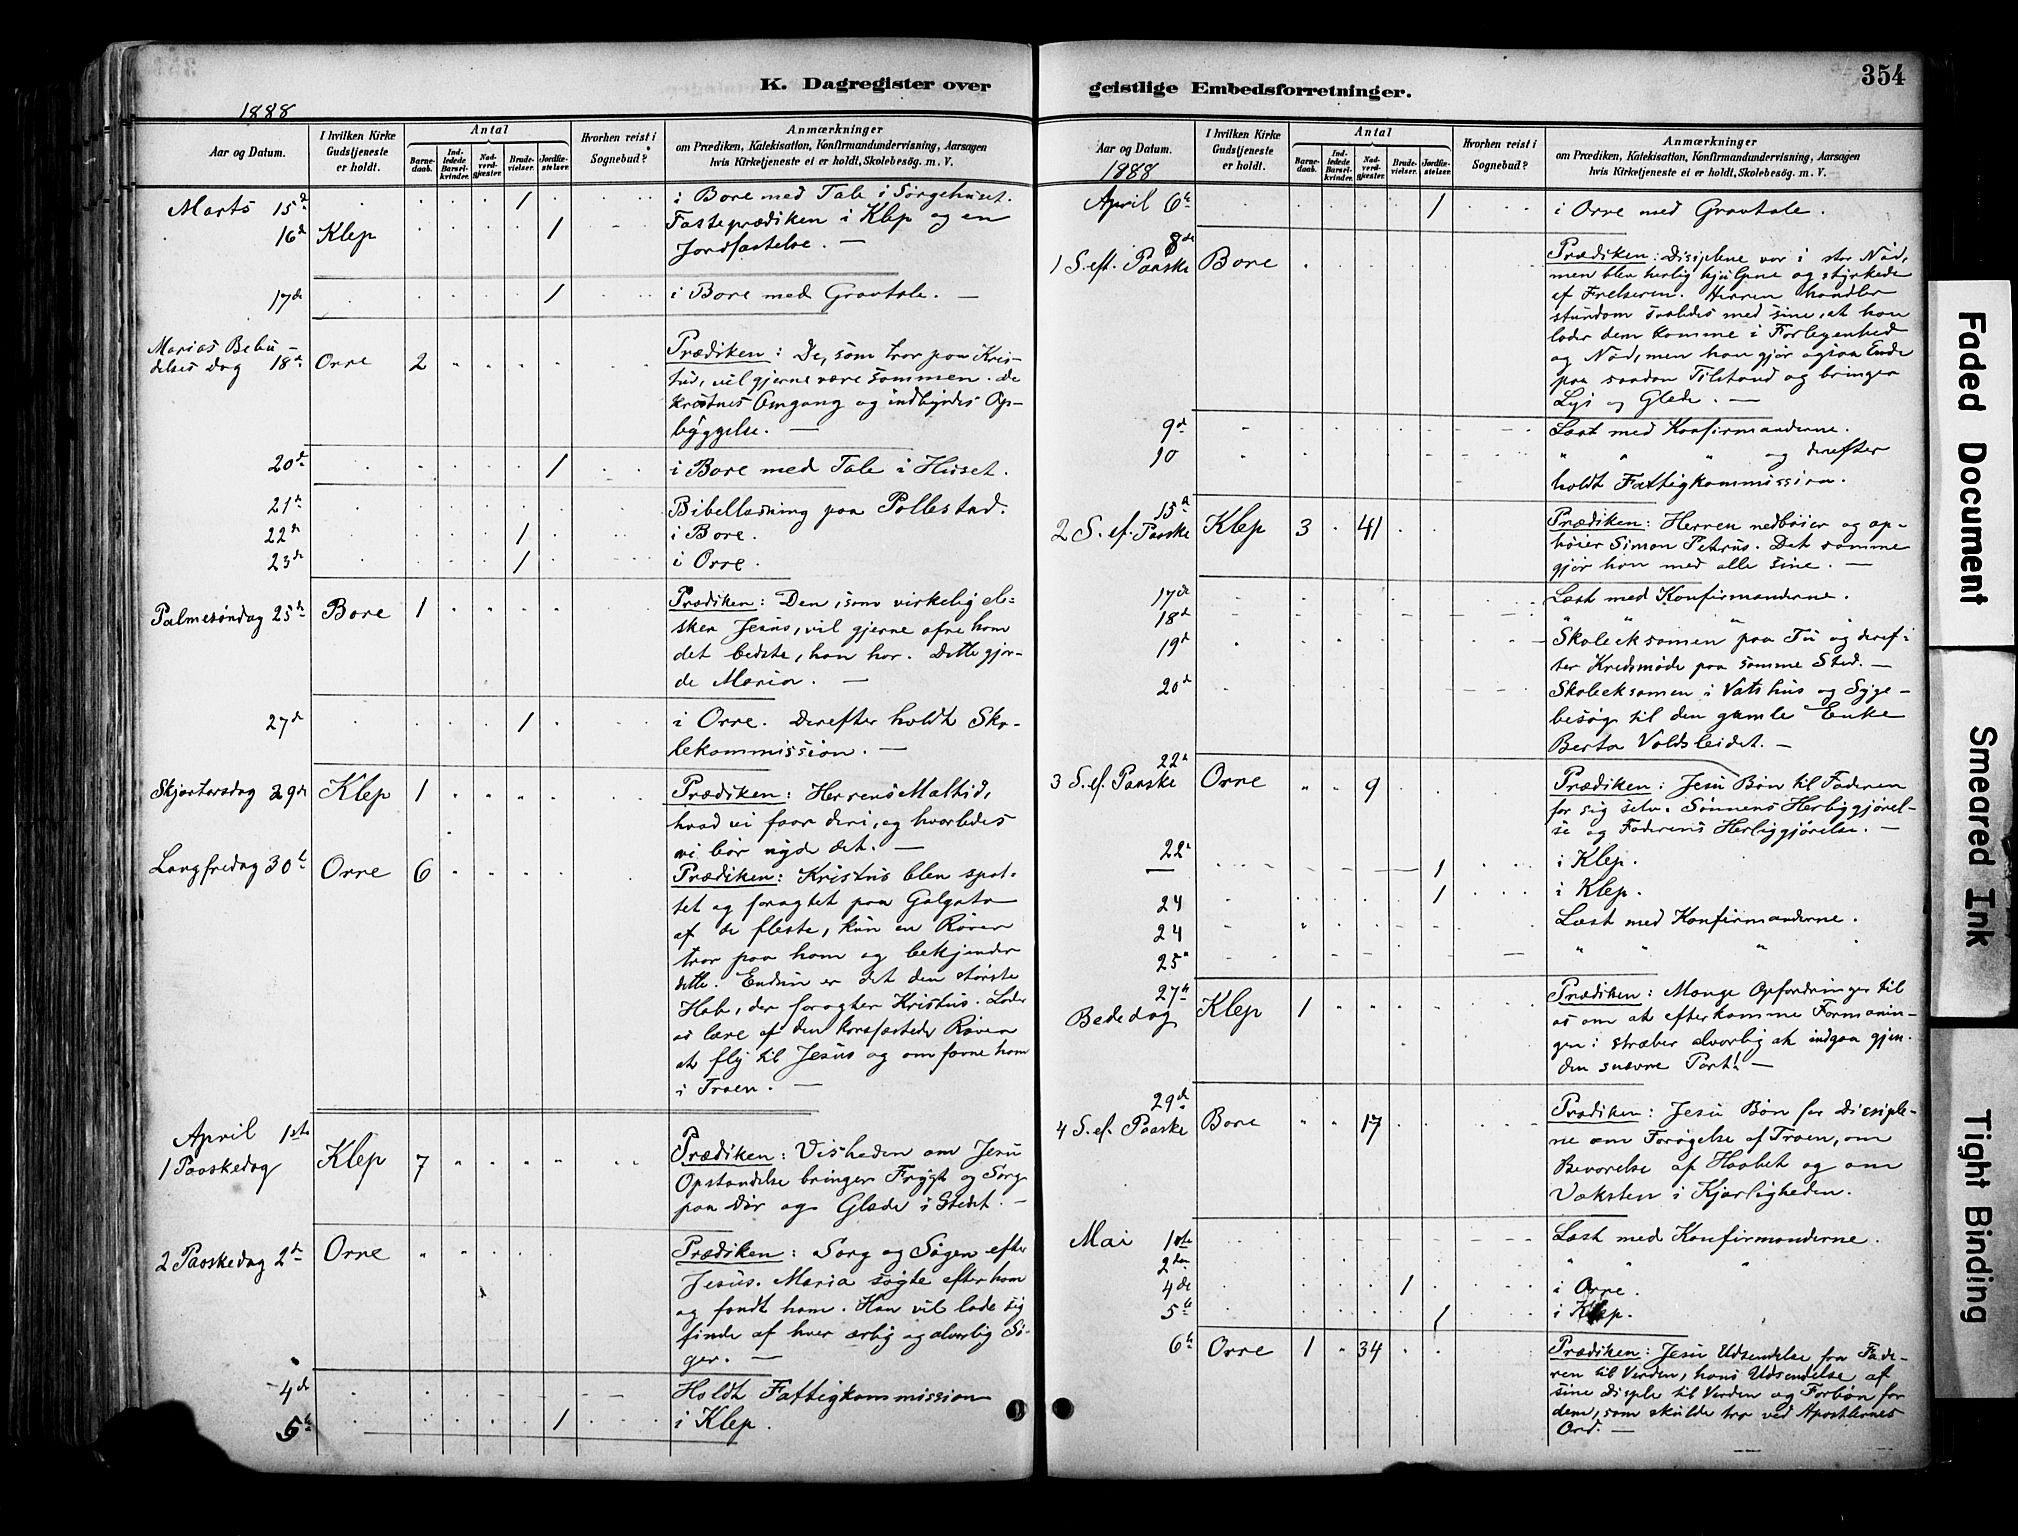 K. Dagregister over
1888
Aar og Datum.
I hvilken Kirke Gudstjeneste er holdt.
Antal
Barnedaab.
Indledede Barselkvinder.
Nadverdgjæster.
Brudevielser.
Jordfæstelser.
Hvorhen reist i Sognebud?
Anmærkninger
om Prædiken, Katekisation, Konfirmandundervisning, Aarsagen
hvis Kirketjeneste ei er holdt, Skolebesøg. m. V.
Marts 15de 1 i Bore med Tale i Sørgehuset.
16de Klep 1 Fasteprædiken i Klep og en
Jordfæstelse. —
17de 1 i Bore med Gravtale. —
Marias Bebu-
delses dag 18de Orre 2 Prædiken: De, som tror paa Kris-
tus, vil gjerne være sammen. De
kristnes Omgang og indbyrdes Op-
byggelse. —
20de 1 i Bore med Tale i Huset.
21de Bibellæsning paa Pollestad.
22de 1 i Bore.
23de 1 i Orre.
Palmesøndag 25de Bore 1 Prædiken: Den, som virkelig el-
sker Jesus, vil gjerne ofre ham
det bedste, han har. Dette gjor-
de Maria. —
27de 1 i Orre. Derefter holdt Sko-
lekommission. —
Skjærtorsdag 29de Klep 1 Prædiken: Herrens Maltid,
hvad vi faar deri, og hvorledes
vi bør nyde det. —
Langfredag 30te Orre 6 Prædiken: Kristus blev spot-
tet og foragtet paa Golgata
af de fleste, kun en Røver
tror paa ham og bekjender
dette. Endnu er det den største
Hob, der foragter Kristus. Lader
os lære af den korsfæstede Røver
at fly til Jesus og omfavne ham
i Troen. —
April 1ste
1 Paaskedag Klep 7 Prædiken: Visheden om Jesu
Opstandelse bringer Frygt og Sorg
paa Dør og Glæde i Stedet. —
2 Paaskedag 2den Orre Prædiken: Sorg og Søgen efter
Jesus. Maria søgte efter ham
og fandt ham. Han vil lade sig
finde af hver ærlig og alvorlig Sø-
ger. —
4de Holdt Fattigkommission
5te 1 i Klep.
geistlige Embedsforretninger.
354
Aar og Datum.
1888
I hvilken Kirke Gudstjeneste er holdt.
Antal
Barnedaab.
Indledede Barselkvinder.
Nadverdgjæster.
Brudevielser.
Jordfæstelser.
Hvorhen reist i Sognebud?
Anmærkninger
om Prædiken, Katekisation, Konfirmandundervisning, Aarsagen
hvis Kirketjeneste ei er holdt, Skolebesøg. m. V.
April 6te 1 i Orre med Gravtale.
8de
1 S. eft. Paaske Bore Prædiken: Disiplene var i stor Nød,
men blev herlig hjulpne og styrkede
af Frelseren. Herren handler
stundom saaledes med sine, at han
lader dem komme i Forlegenhed
og Nød, men han gjør ogsaa Ende
paa saadan Tilstand og bringer
Lys og Glæde. —
9de Læst med Konfirmanderne.
10 " " " og derefter
holdt Fattigkommission.
15de
2 S. ef. Paaske Klep 3 41 Prædiken: Herren nedbøier og op-
høier Simon Petrus. Det samme
gjør han med alle sine. —
17de Læst med Konfirmanderne.
18de " " "
19de Skoleeksamen paa Tu og deref-
ter Kredsmøde paa samme Sted. —
20de Skoleeksamen i Vatshus og Syge-
besøg til den gamle Enke
Berta Voldsleidet. —
22de
3 S. ef. Paaske Orre 9 Prædiken: Jesu Bøn til Faderen
for sig selv. Sønnens Herliggjørel-
se og Faderens Herliggjørelse. —
22de 1 i Klep.
— 1 i Klep.
24 Læst med Konfirmanderne.
24
25 " " "
27de
Bededag Klep 1 Prædiken: Mange Opfordringer til
os om at efterkomme Formanin-
gen: stræber alvorlig at indgaa gjen-
den snævre Port! —
29de
4 S. ef. Paaske Bore 17 Prædiken: Jesu Bøn for Disciple-
ne om Forøgelse af Troen, om
Bevarelse af Haabet og om
Væksten i Kjærligheden.
Mai 1ste Læst med Konfirmanderne.
2den " " "
4de 1 i Orre.
5te 1 i Klep.
6te Orre 1 34 Prædiken: Jesu Udsendelse fra Fade-
ren til Verden, hans Udsendelse af
sine Disiple til Verden og Forbøn for
dem, som skulde tro ved Apostlernes
Ord. —
Faded Document
Smeared Ink
Tight Binding